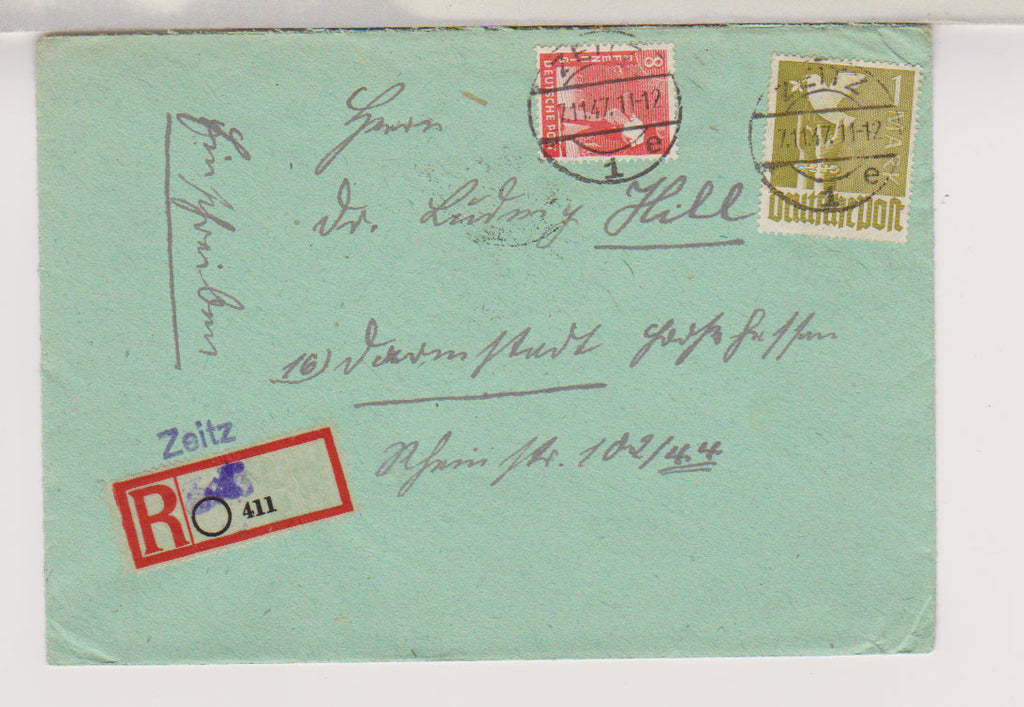 Einschreiben
Herrn
Dr. Ludwig Hill
16) Darmstadt Hessen
Rheinstr. 102/44
8 PFENNIG
DEUTSCHE POST
ZEITZ
7.11.47.11-12
1 e
1 MARK
Deutsche Post
ZEITZ
7.11.47.11-12
1 e
Zeitz
R 411